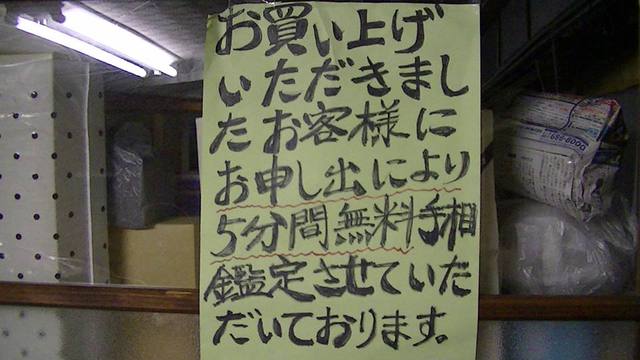 お買い上げ
いただきまし
たお客様に
お申し出により
5分間無料手相
鑑定させていた
だいております。